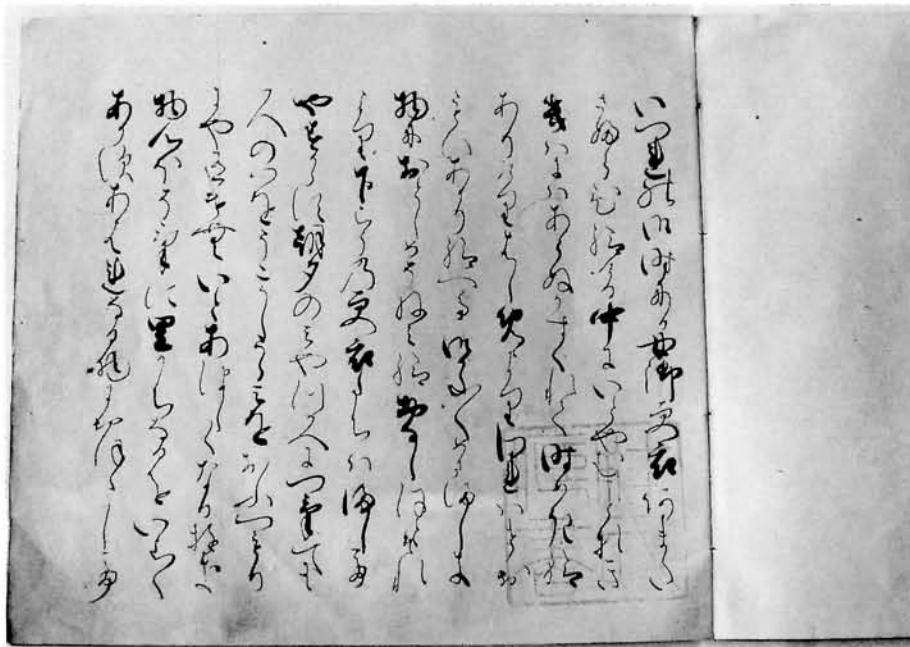 いつれの御時にか女御更衣あまた
さふらひ給ける中にいとやむことなき
幾はにはあらぬかすくれて時めき給
ありけりはしめよりわれはとお
もひあかり給へる御かた〱めさまし
物におとしめそねみ給おなしほとそれ
より下らうの更衣たちはまして
やすからす朝夕のみやつかへにつけても
人の心をうこかしうらみをおふつもり
にやありけむいとあつしくなり
物心ほそけに里かちなるをいよ〱
あかすあはれなる